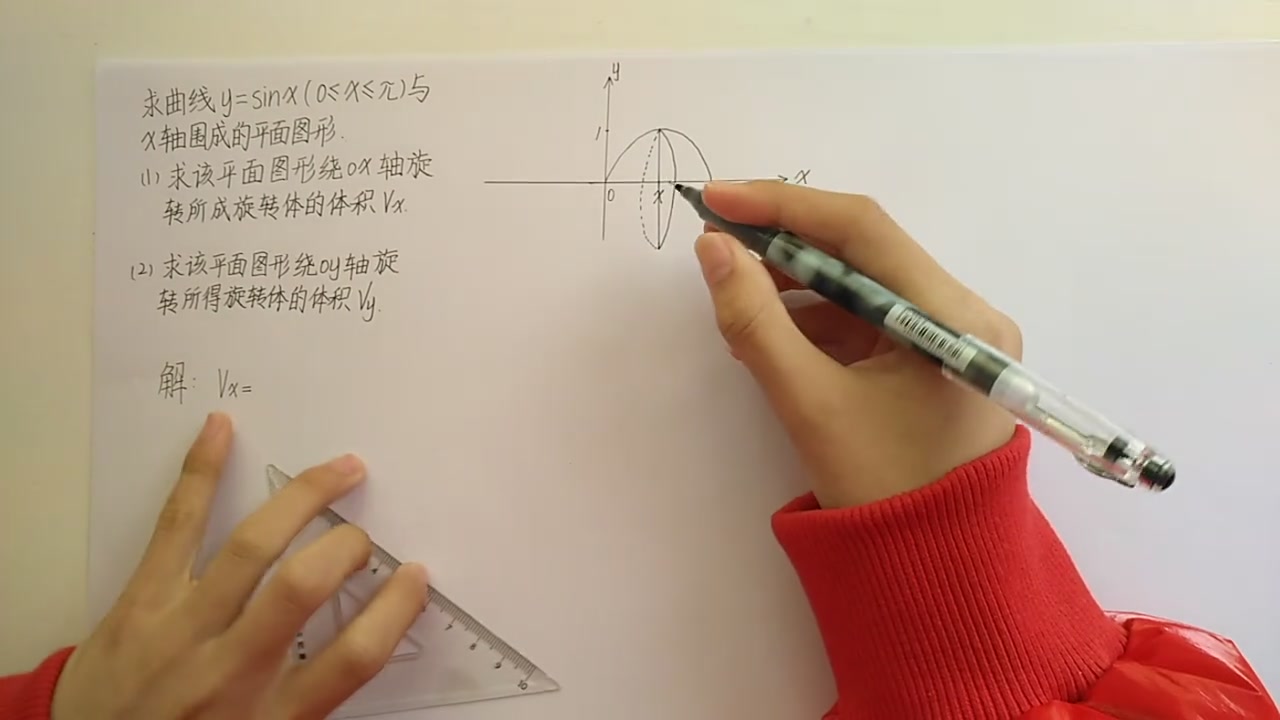 求曲线y=sinx(0≤x≤π)与
x轴围成的平面图形.
(1) 求该平面图形绕ox轴旋
转所成旋转体的体积Vx.
(2) 求该平面图形绕oy轴旋
转所得旋转体的体积Vy.
解: Vx=
y
1
0
x
x
7
8
9
10